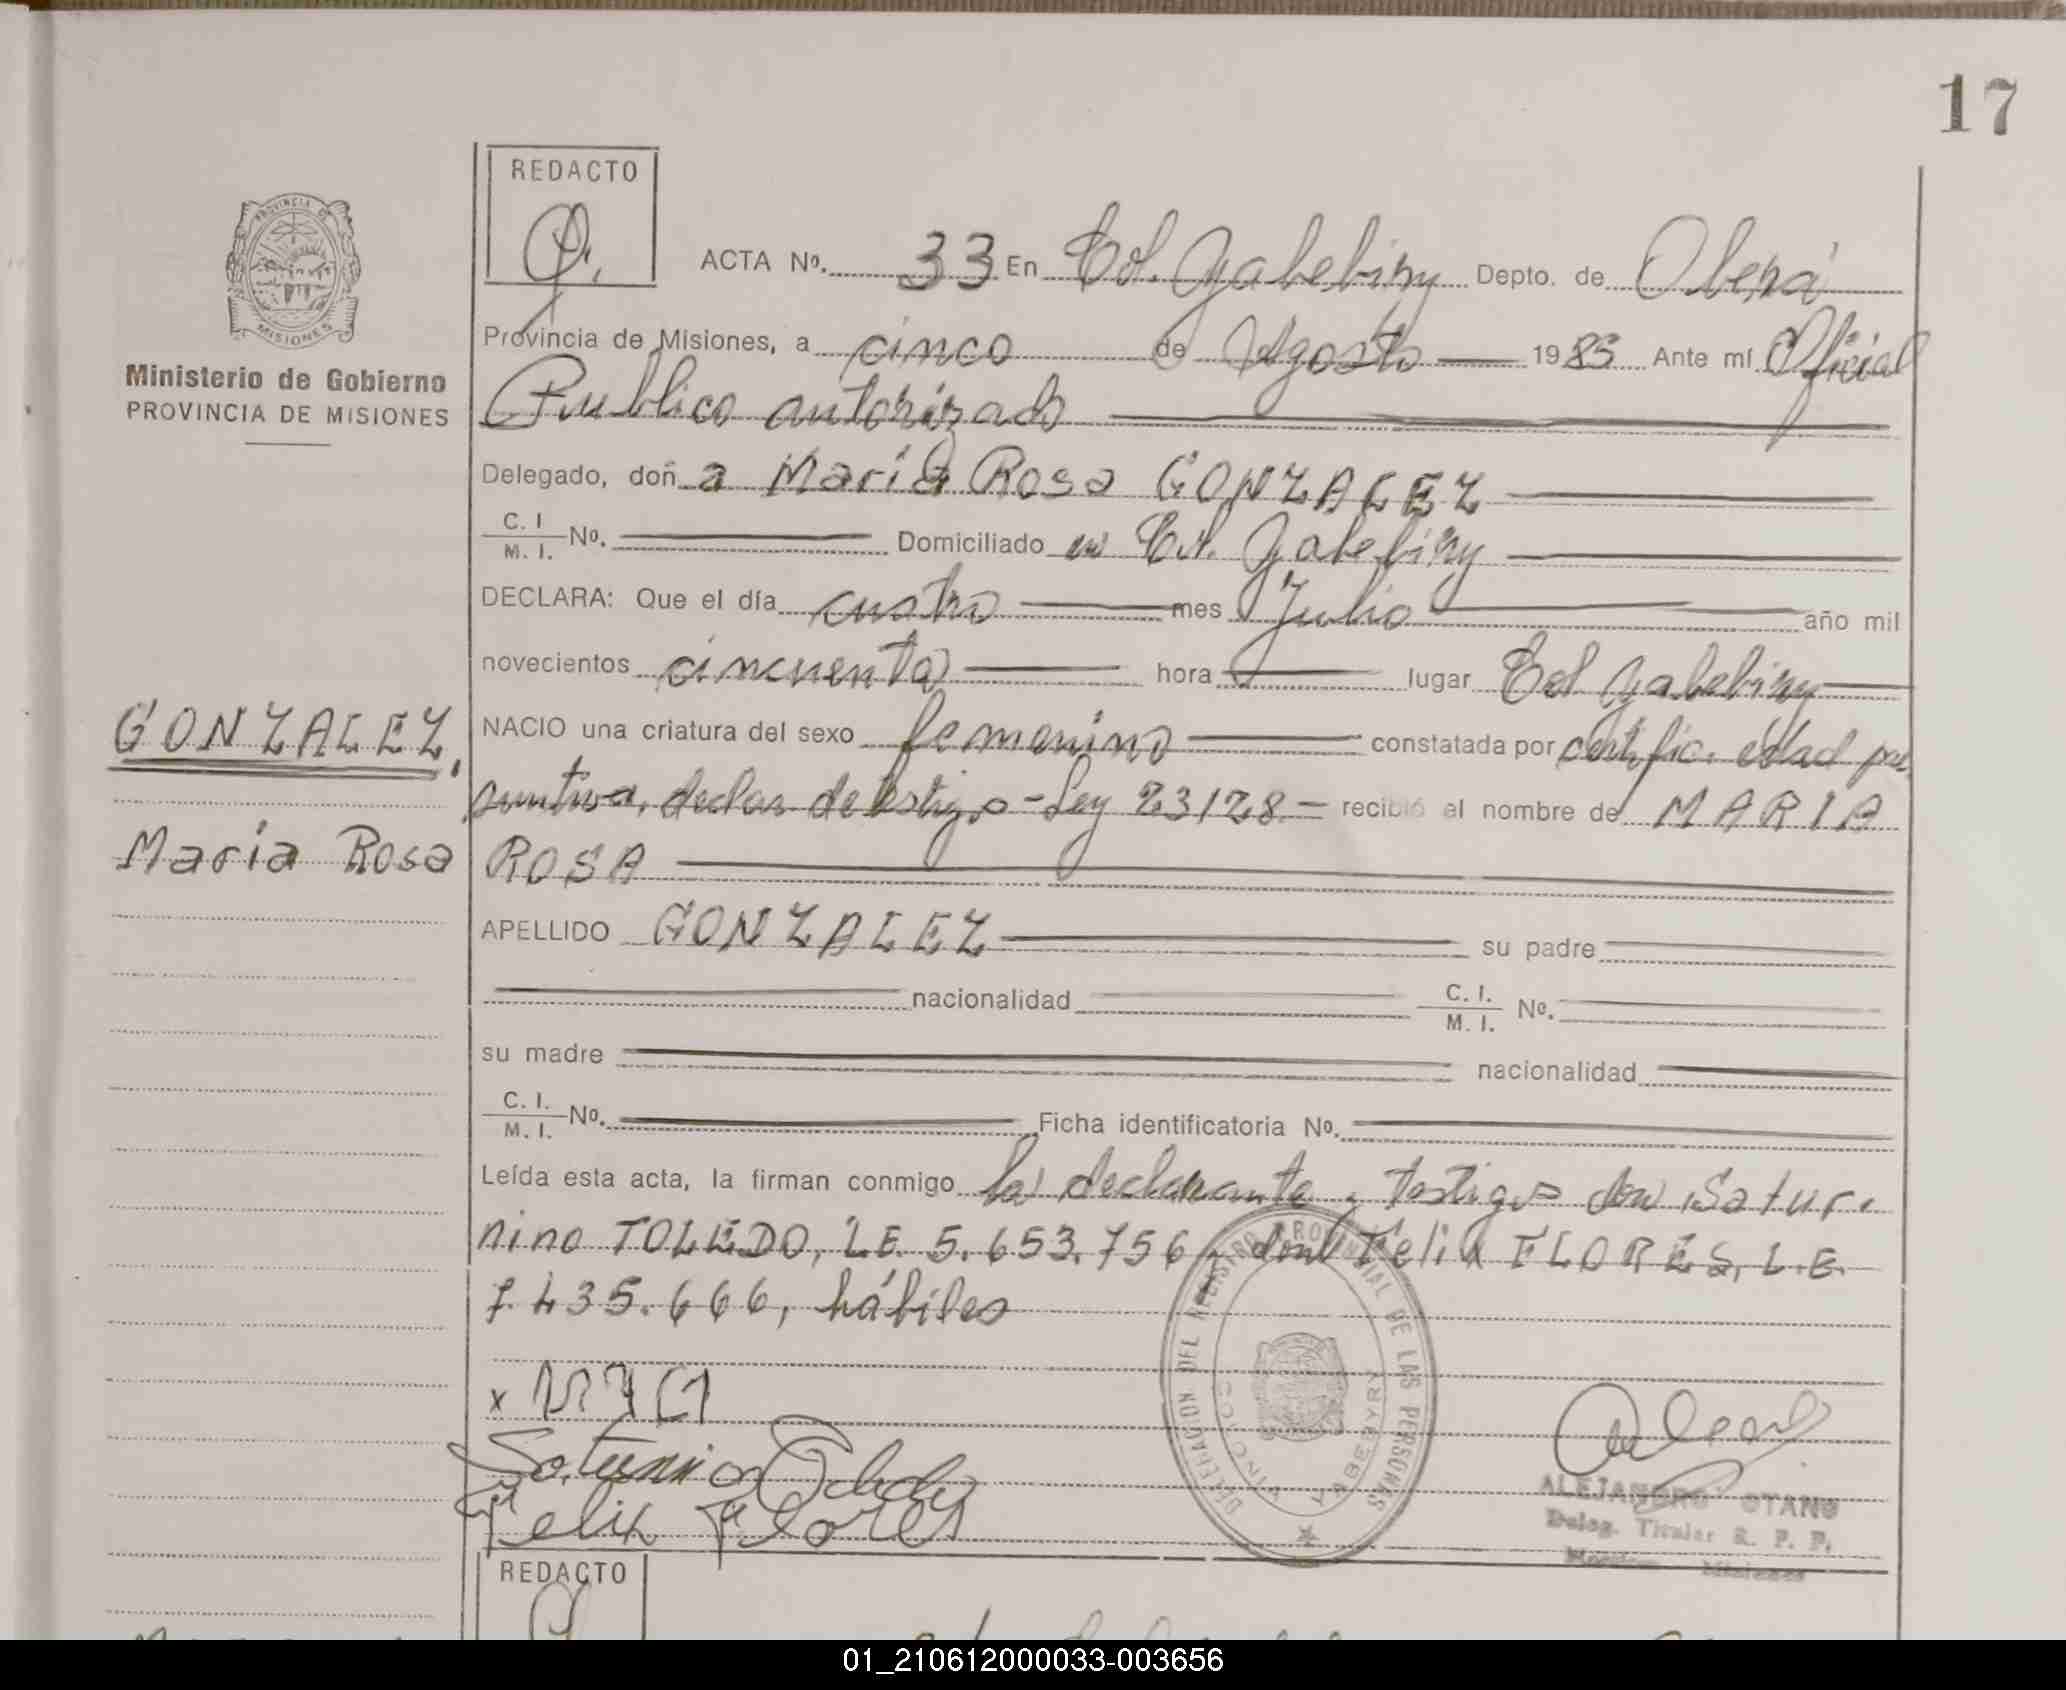 17
REDACTO
PROVINCIA DE
MISIONES
Ministerio de Gobierno
PROVINCIA DE MISIONES
ACTA Nº. 33 En Col. Yabebiry Depto. de Oberá
Provincia de Misiones, a cinco de Agosto 1985 Ante mí Oficial
Publico autorizado
Delegado, doña María Rosa GONZALEZ
C. I. M. I. Nº. Domiciliado en Col. Yabebiry
DECLARA: Que el día cuatro mes Julio año mil
novecientos cincuenta hora lugar Col Yabebiry
NACIO una criatura del sexo femenino constatada por certific. edad pre
suntiva, declar de testigo - Ley 23128 - recibió el nombre de MARIA
ROSA
GONZALEZ,
María Rosa
APELLIDO GONZALEZ su padre
nacionalidad C. I. M. I. Nº.
su madre nacionalidad
C. I. M. I. Nº. Ficha identificatoria Nº.
Leída esta acta, la firman conmigo la declarante y testigos don Satur-
nino TOLEDO, L.E. 5.653.756 y don Felix FLORES, L.E.
7.435.666, hábiles
x
Saturnino Toledo
Felix Flores
DELEGACION DEL REGISTRO PROVINCIAL DE LAS PERSONAS
YABEBYRY
ALEJANDRO OTANO
Deleg. Titular R. P. P.
Misiones
REDACTO
01_210612000033-003656